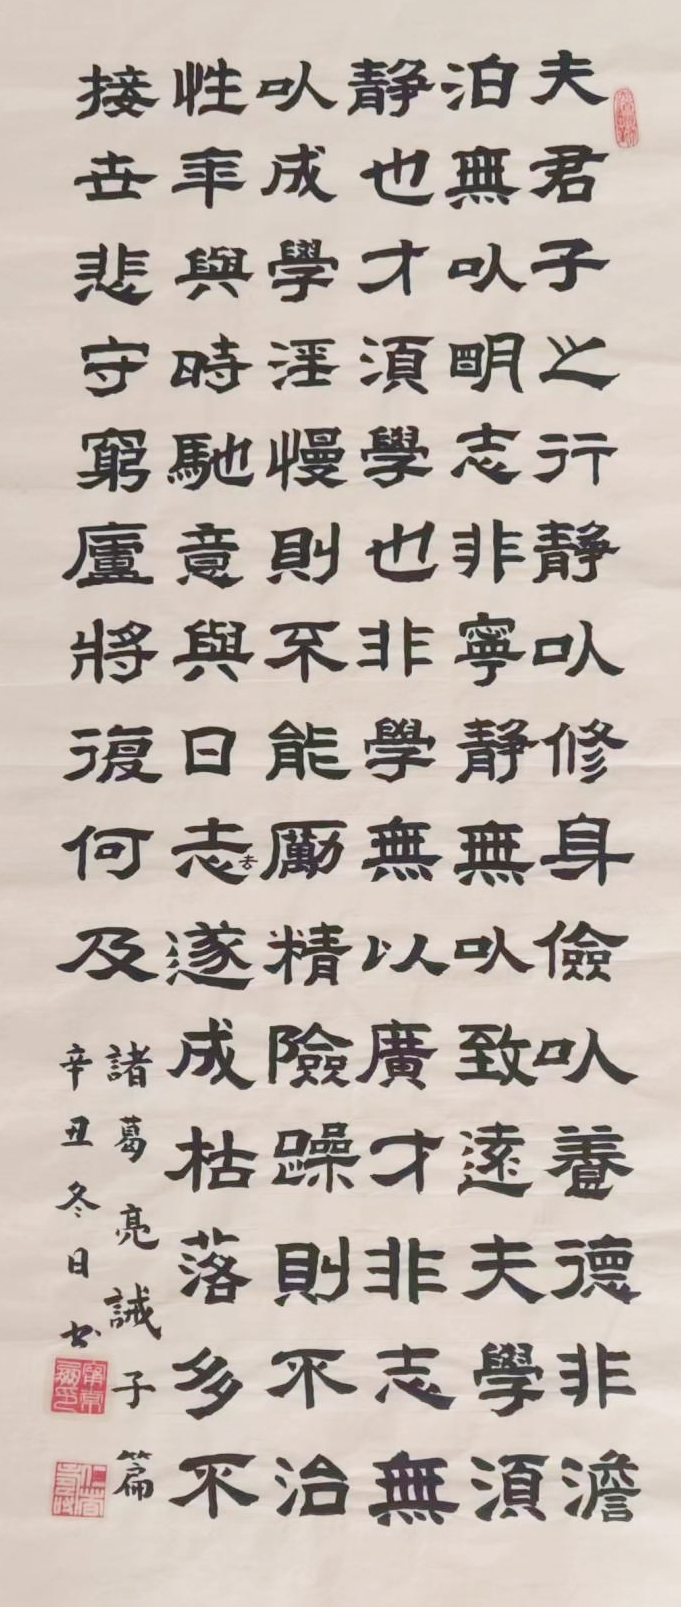 夫君子之行静以修身儉以養德非澹
泊無以明志非寧静無以致遠夫學須
静也才須學也非學無以廣才非志無
以成學淫慢則不能勵精險躁則不治
性年與時馳意與日志去遂成枯落多不
接世悲守窮廬將復何及
諸葛亮誡子篇
辛丑冬日书